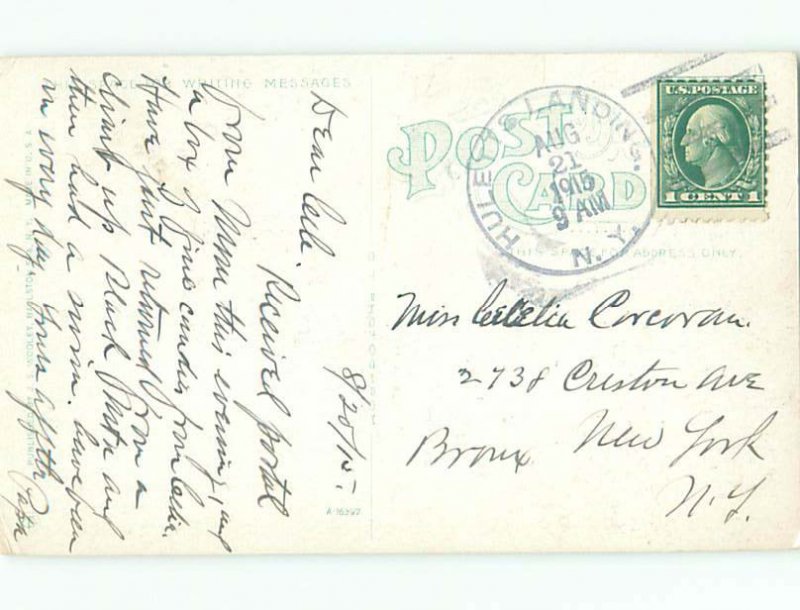 THIS SPACE FOR WRITING MESSAGES
8/20/15.
Dear Cele.
Received postal
from Mom this evening, and
a box of fine candies from Celia.
Have just returned from a
climb up Black Mountain and
then had a swim. have been
in every day. Yours affctn
Papa
A-16392
POST
CARD
THIS SPACE FOR ADDRESS ONLY.
HULETTS LANDING.
AUG
21
1915
9 AM
N. Y.
U.S. POSTAGE
1 CENT 1
Miss Cecelia Corcoran.
2738 Creston Ave
Bronx New York
N.Y.